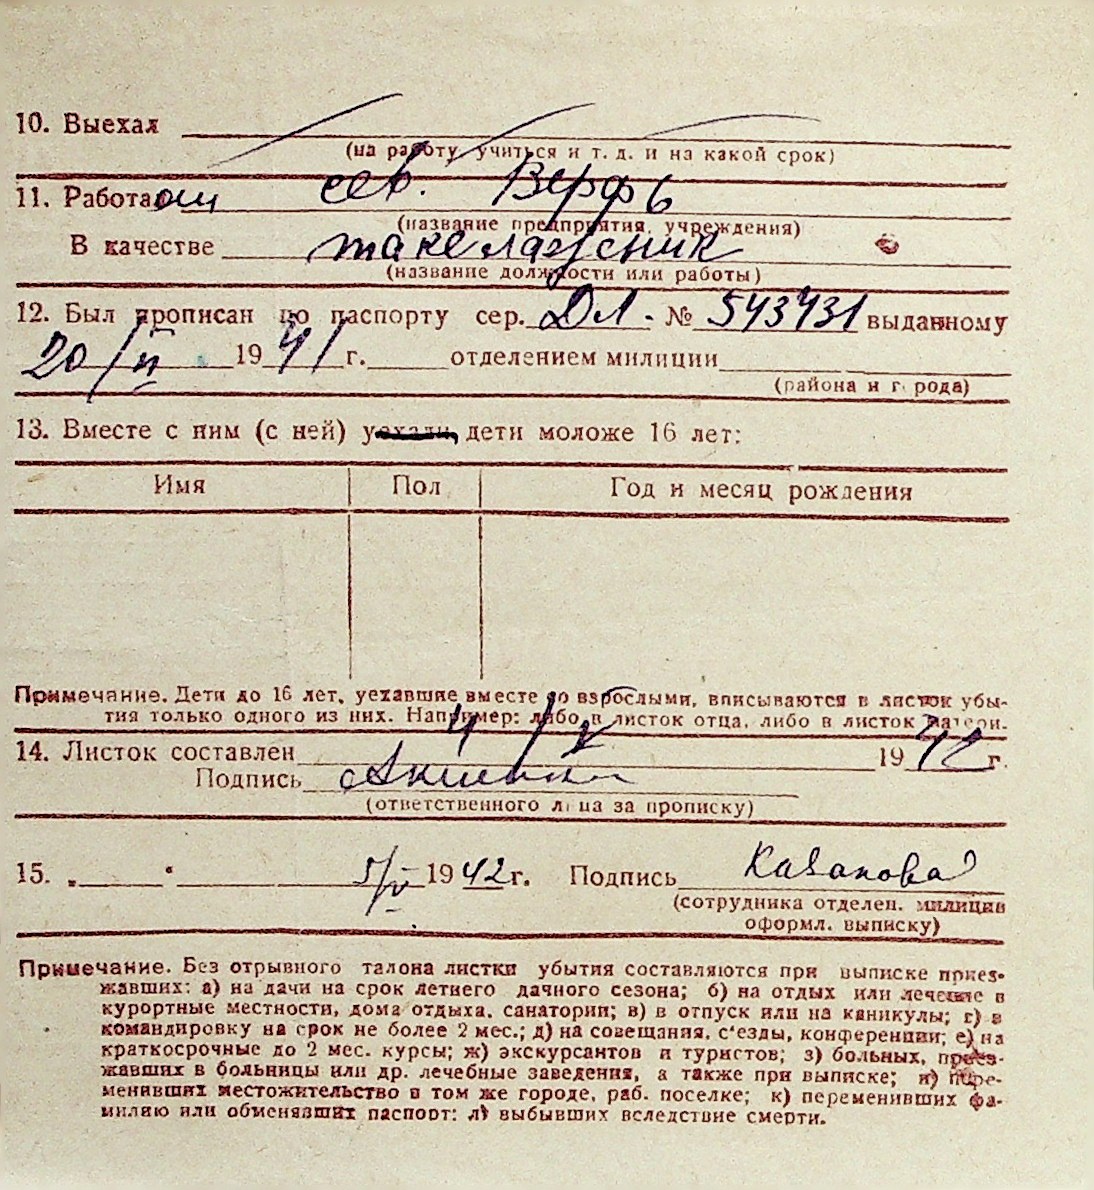 10. Выехал
(на работу, учиться и т. д. и на какой срок)
11. Работал сев. Верфь
(название предприятия, учреждения)
В качестве такелажник
(название должности или работы)
12. Был прописан по паспорту сер. ДЛ. № 543431 выданному
20/II 1941 г. отделением милиции
(района и города)
13. Вместе с ним (с ней) уехали, дети моложе 16 лет:
Имя Пол Год и месяц рождения
Примечание. Дети до 16 лет, уехавшие вместе со взрослыми, вписываются в листок убы-
тия только одного из них. Например: либо в листок отца, либо в листок матери.
14. Листок составлен 4/V 1942 г.
Подпись
(ответственного лица за прописку)
15. „ “ 5/V 1942 г. Подпись Казакова
(сотрудника отделен. милиции
оформл. выписку)
Примечание. Без отрывного талона листки убытия составляются при выписке приез-
жавших: а) на дачи на срок летнего дачного сезона; б) на отдых или лечение в
курортные местности, дома отдыха, санатории; в) в отпуск или на каникулы; г) в
командировку на срок не более 2 мес.; д) на совещания, с'езды, конференции; е) на
краткосрочные до 2 мес. курсы; ж) экскурсантов и туристов; з) больных, приез-
жавших в больницы или др. лечебные заведения, а также при выписке; и) пере-
менивших местожительство в том же городе, раб. поселке; к) переменивших фа-
милию или обменявших паспорт; л) выбывших вследствие смерти.